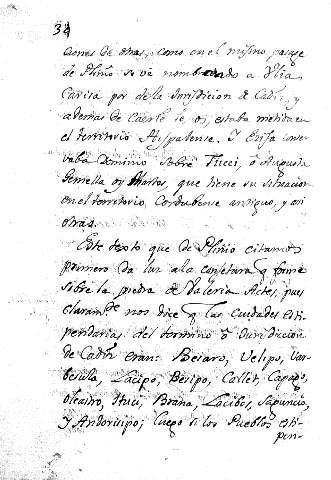 34
ciones de otras, como en el mismo pasage
de Plinio se ve nombrando a Ylia
por de la Jurisdicion de Cadiz, y
ademas de ser lo asi, estaba metida en
el territorio Hispalense. Y Ecija conser
vaba dominio sobre Tucci, ó Augusta
Gemella oy Martos, que tiene su situacion
en el territorio Cordubense antiguo, y asi
otras.
Este texto que de Plinio citamos
primero da luz a la conjetura q forme
sobre la piedra de Valeria Aetes, pues
claramte nos dice q las ciudades esti
pendarias del termino ó Jurisdiccion
de Cadiz eran: Besaro, Velipo, Bar
besula, Lacipo, Besipo, Callet, Capagu,
Oleastro, Ituci, Brana, Lacibes, Sapuncio,
y Andorisipo; luego si los Pueblos esti-
pen-